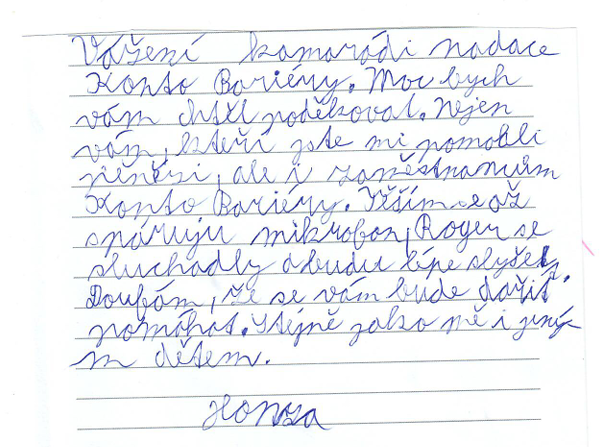 Vážení kamarádi nadace
Konto Bariéry. Moc bych
vám chtěl poděkovat. Nejen
vám, kteří jste mi pomohli
penězi, ale i zaměstnancům
Konto Bariéry. Těším se až
spáruju mikrofon, Roger se
sluchadly a budu lépe slyšet.
Doufám, že se vám bude dařit
pomáhat. Stejně jako mě i jiný-
m dětem.
Honza